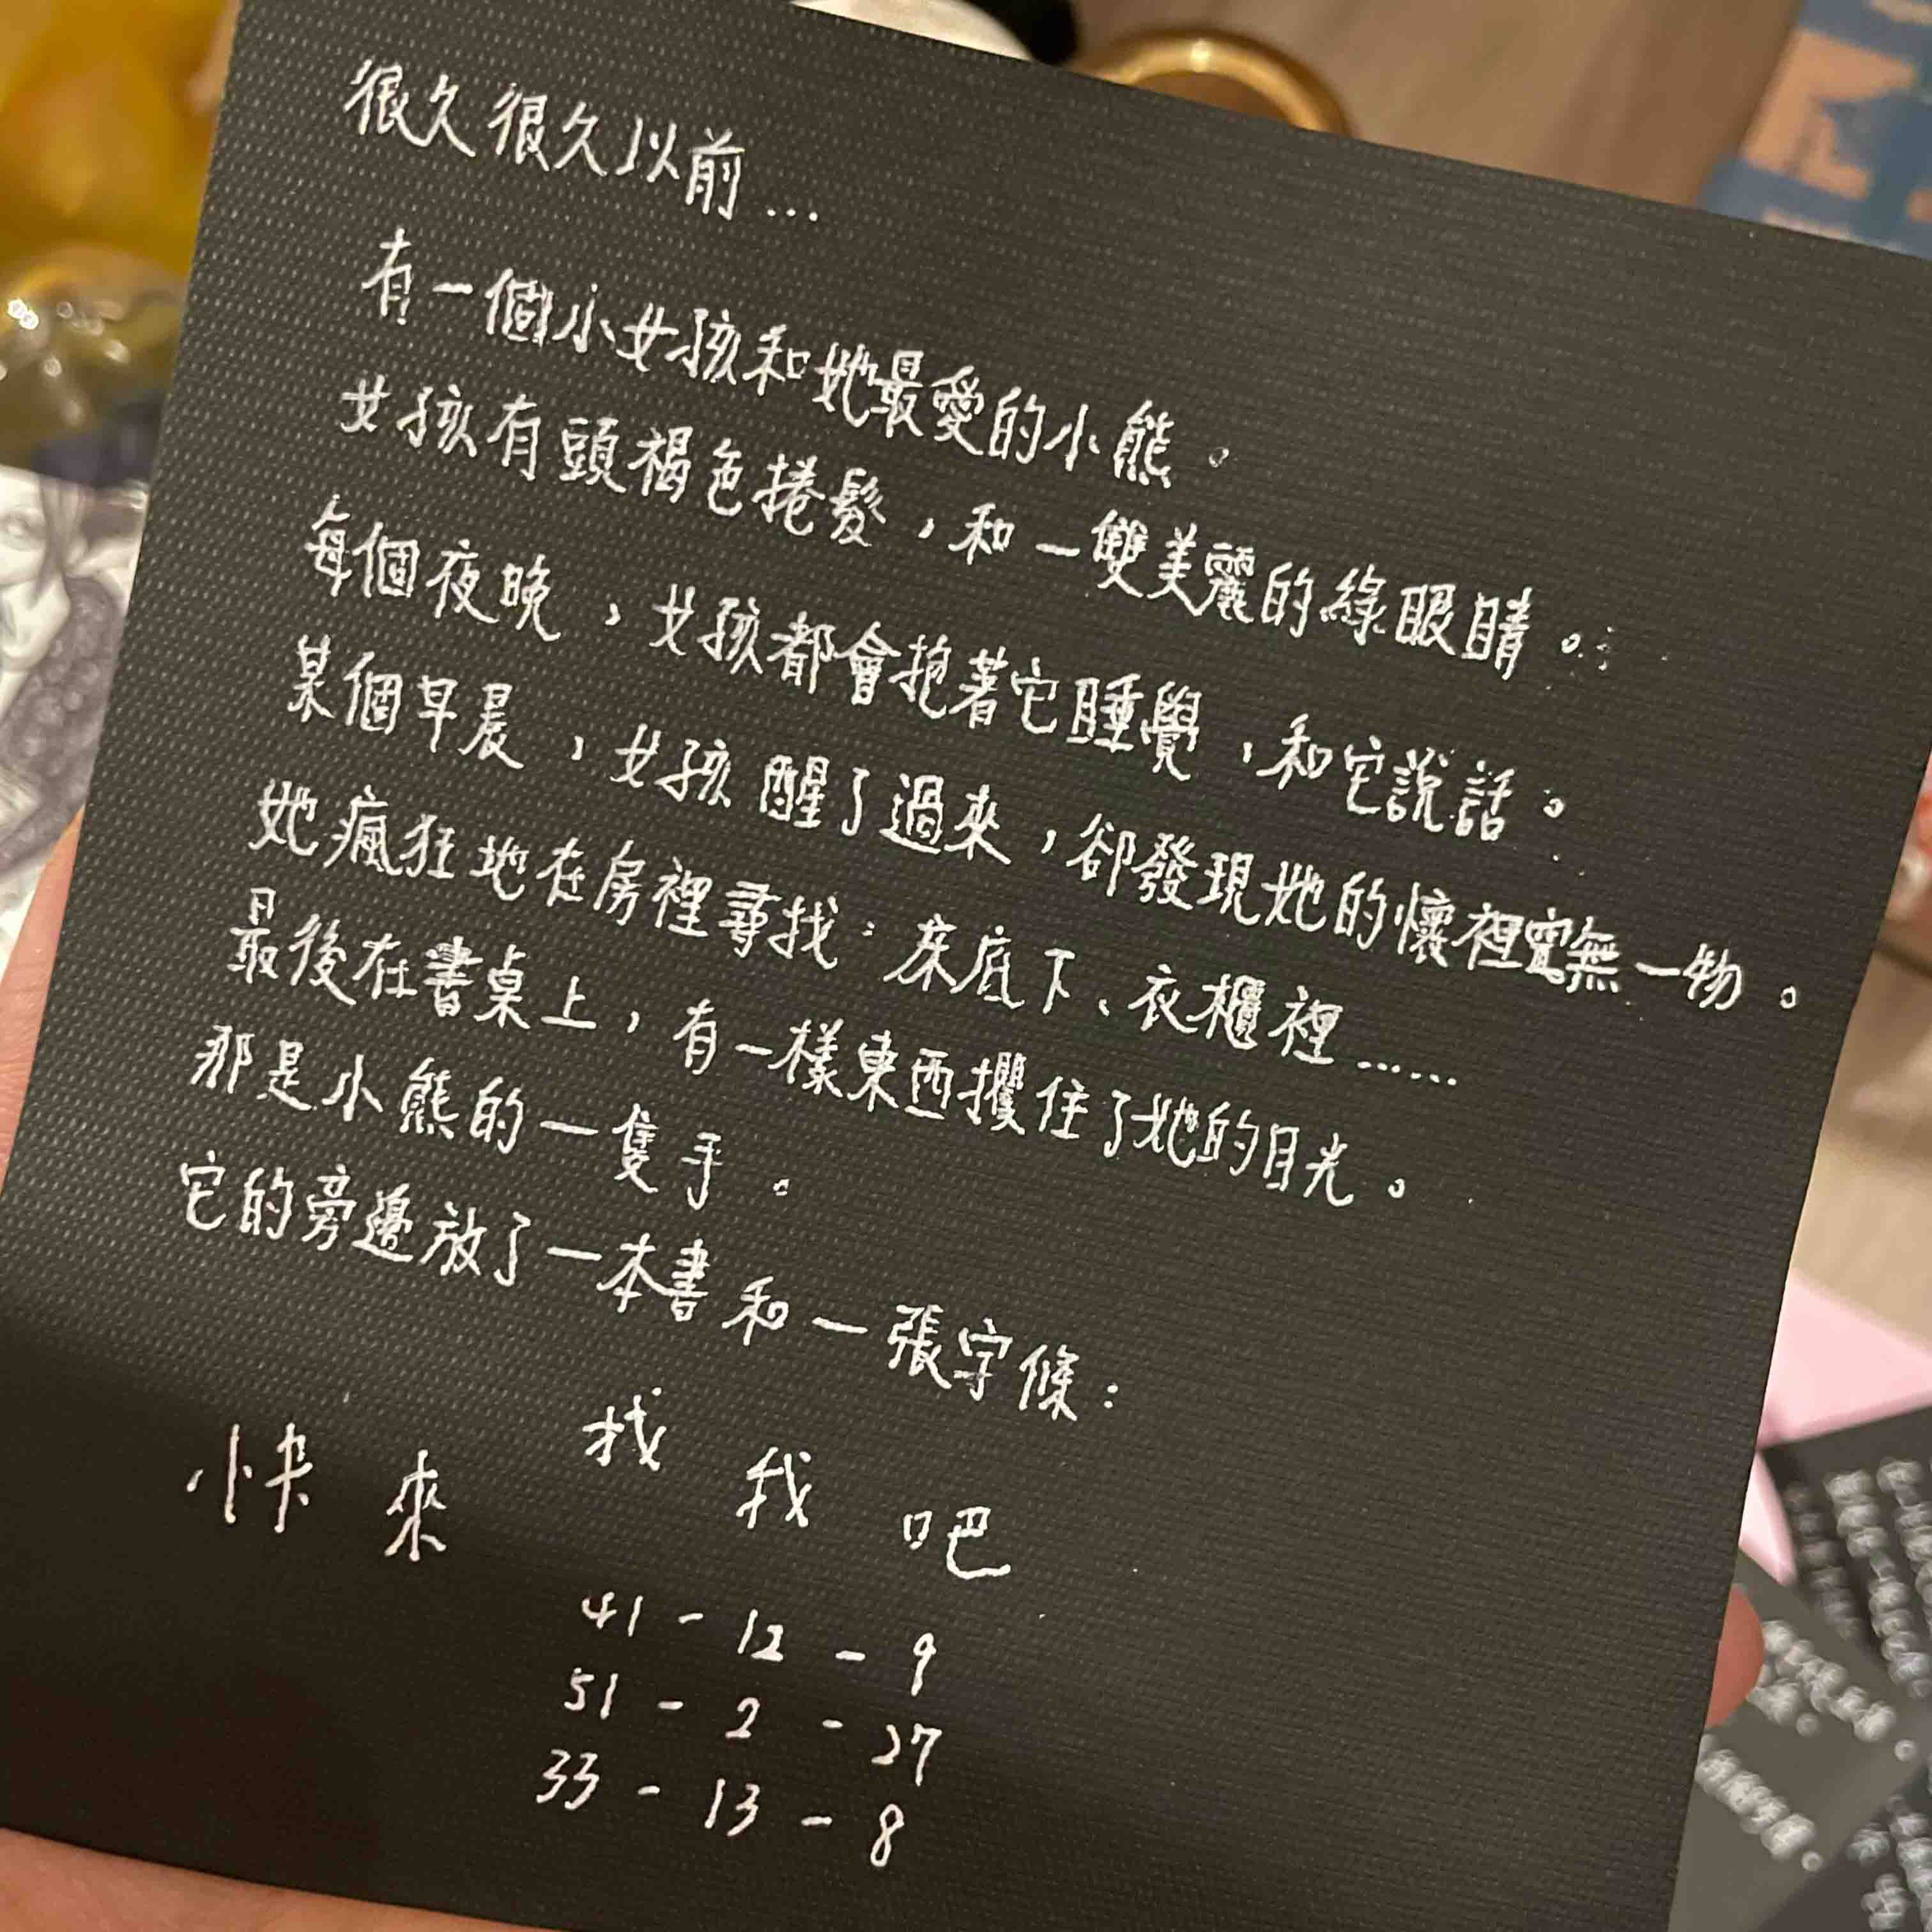 很久很久以前...
有一個小女孩和她最愛的小熊。
女孩有頭褐色捲髮,和一雙美麗的綠眼睛。
每個夜晚,女孩都會抱著它睡覺,和它說話。
某個早晨,女孩醒了過來,卻發現她的懷裡空無一物。
她瘋狂地在房裡尋找:床底下、衣櫃裡......
最後在書桌上,有一樣東西攫住了她的目光。
那是小熊的一隻手。
它的旁邊放了一本書和一張字條:
快來找我吧
41-12-9
51-2-27
33-13-8